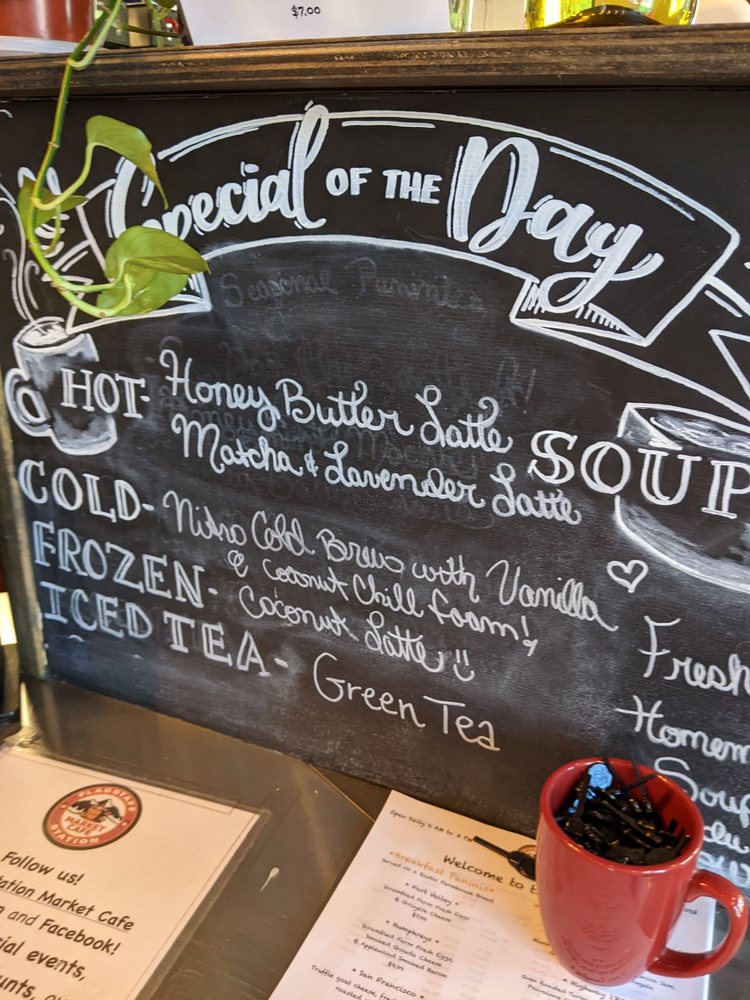 $7.00
Special OF THE Day
Seasonal Paninis
HOT- Honey Butter Latte
Matcha & Lavender Latte
COLD- Nitro Cold Brew with Vanilla
& coconut Chill foam!
FROZEN- Coconut Latte
ICED TEA- Green Tea
SOUP
Fresh
Homem
Soup
FLAGSTAFF
STATION
MARKET
CAFE
Follow us!
tation Market Cafe
and Facebook!
cial events,
Open Daily 6 AM to 2 PM
Welcome to
*Breakfast Paninis*
Served on a Rustic Farmhouse Bread
* Fort Valley *
Scrambled Farm Fresh Eggs
& Gruyere Cheese
* Humphreys *
Scrambled Farm Fresh Eggs,
Smoked Gouda Cheese
& Applewood Smoked Bacon
$9.99
* San Francisco *
Truffle goat cheese,
roasted
Highway
Oven Roasted